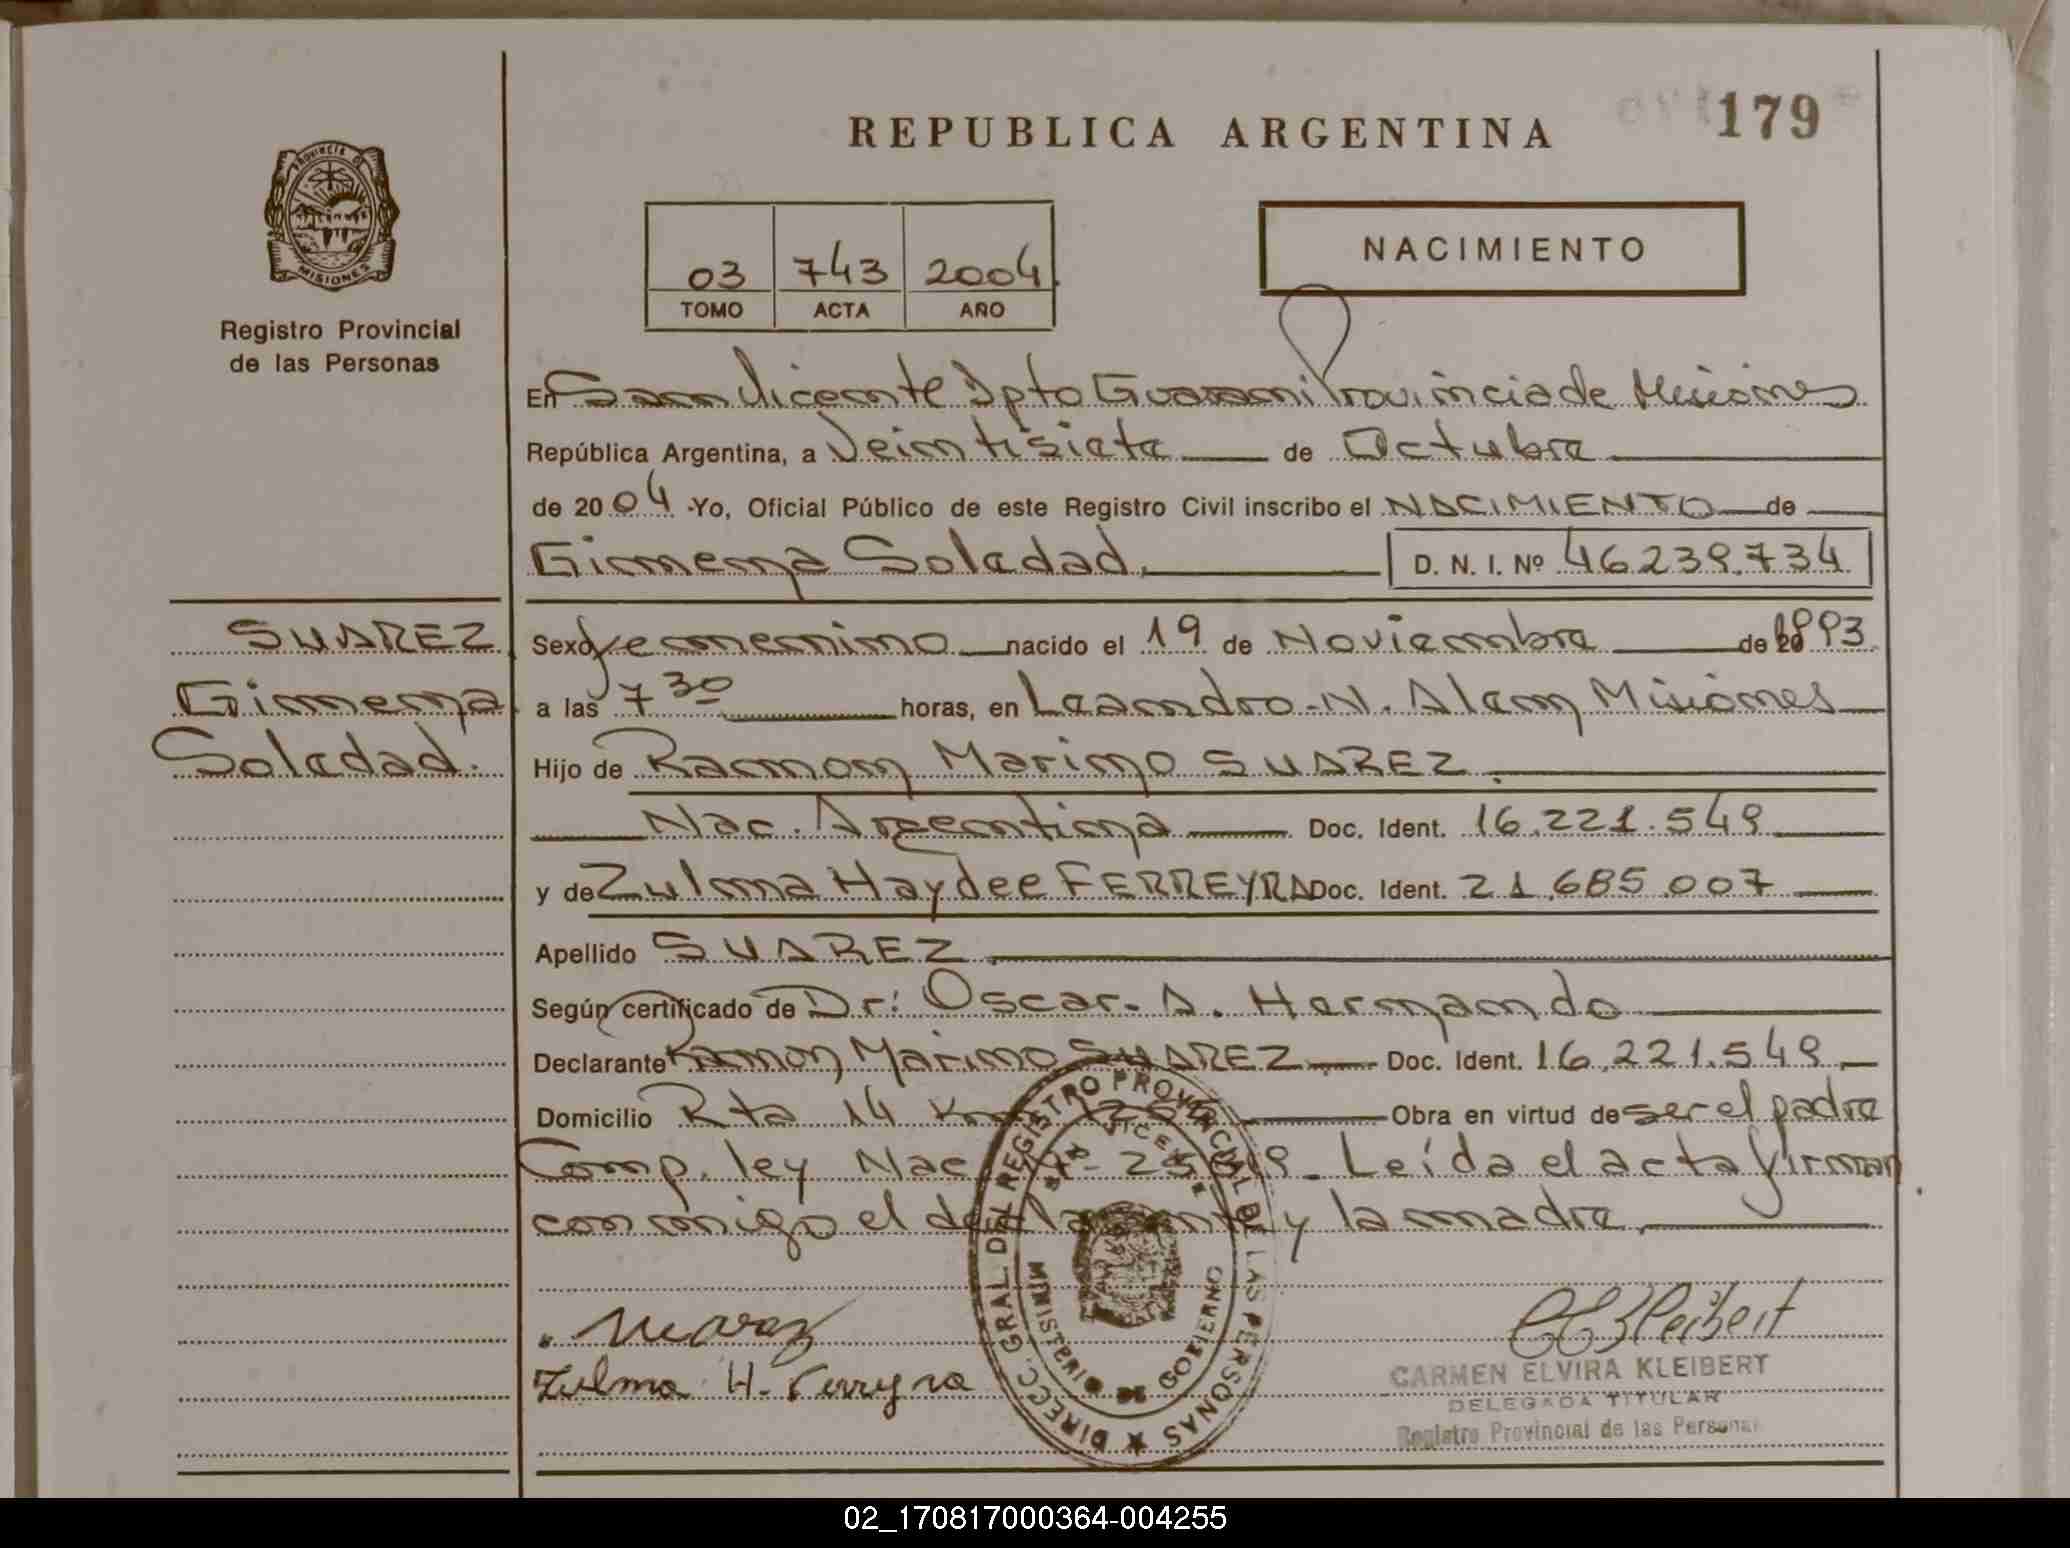 179
REPUBLICA ARGENTINA
PROVINCIA DE
MISIONES
Registro Provincial
de las Personas
03 743 2004
TOMO ACTA AÑO
NACIMIENTO
En San Vicente Dpto Guarani Provincia de Misiones
República Argentina, a Veintisiete de Octubre
de 2004 Yo, Oficial Público de este Registro Civil inscribo el NACIMIENTO de
Gimena Soledad. D. N. I. Nº 46.239.734
SUAREZ
Gimena
Soledad.
Sexo femenino nacido el 19 de Noviembre de 1993
a las 7 30 horas, en Leandro N. Alem Misiones
Hijo de Ramon Marino SUAREZ.
Nac. Argentina Doc. Ident. 16.221.549
y de Zulma Haydee FERREYRA Doc. Ident. 21.685.007
Apellido SUAREZ.
Según certificado de Dr: Oscar A. Hernando
Declarante Ramon Marino SUAREZ Doc. Ident. 16.221.549
Domicilio Rta 14 Km Obra en virtud de ser el padre
Comp. ley Nac Leída el acta firman
conmigo el declarante y la madre.
DIRECC. GRAL. DEL REGISTRO PROVINCIAL DE LAS PERSONAS
MINISTERIO DE GOBIERNO
Zulma H. Ferreyra
CARMEN ELVIRA KLEIBERT
DELEGADA TITULAR
Registro Provincial de las Personas
02_170817000364-004255